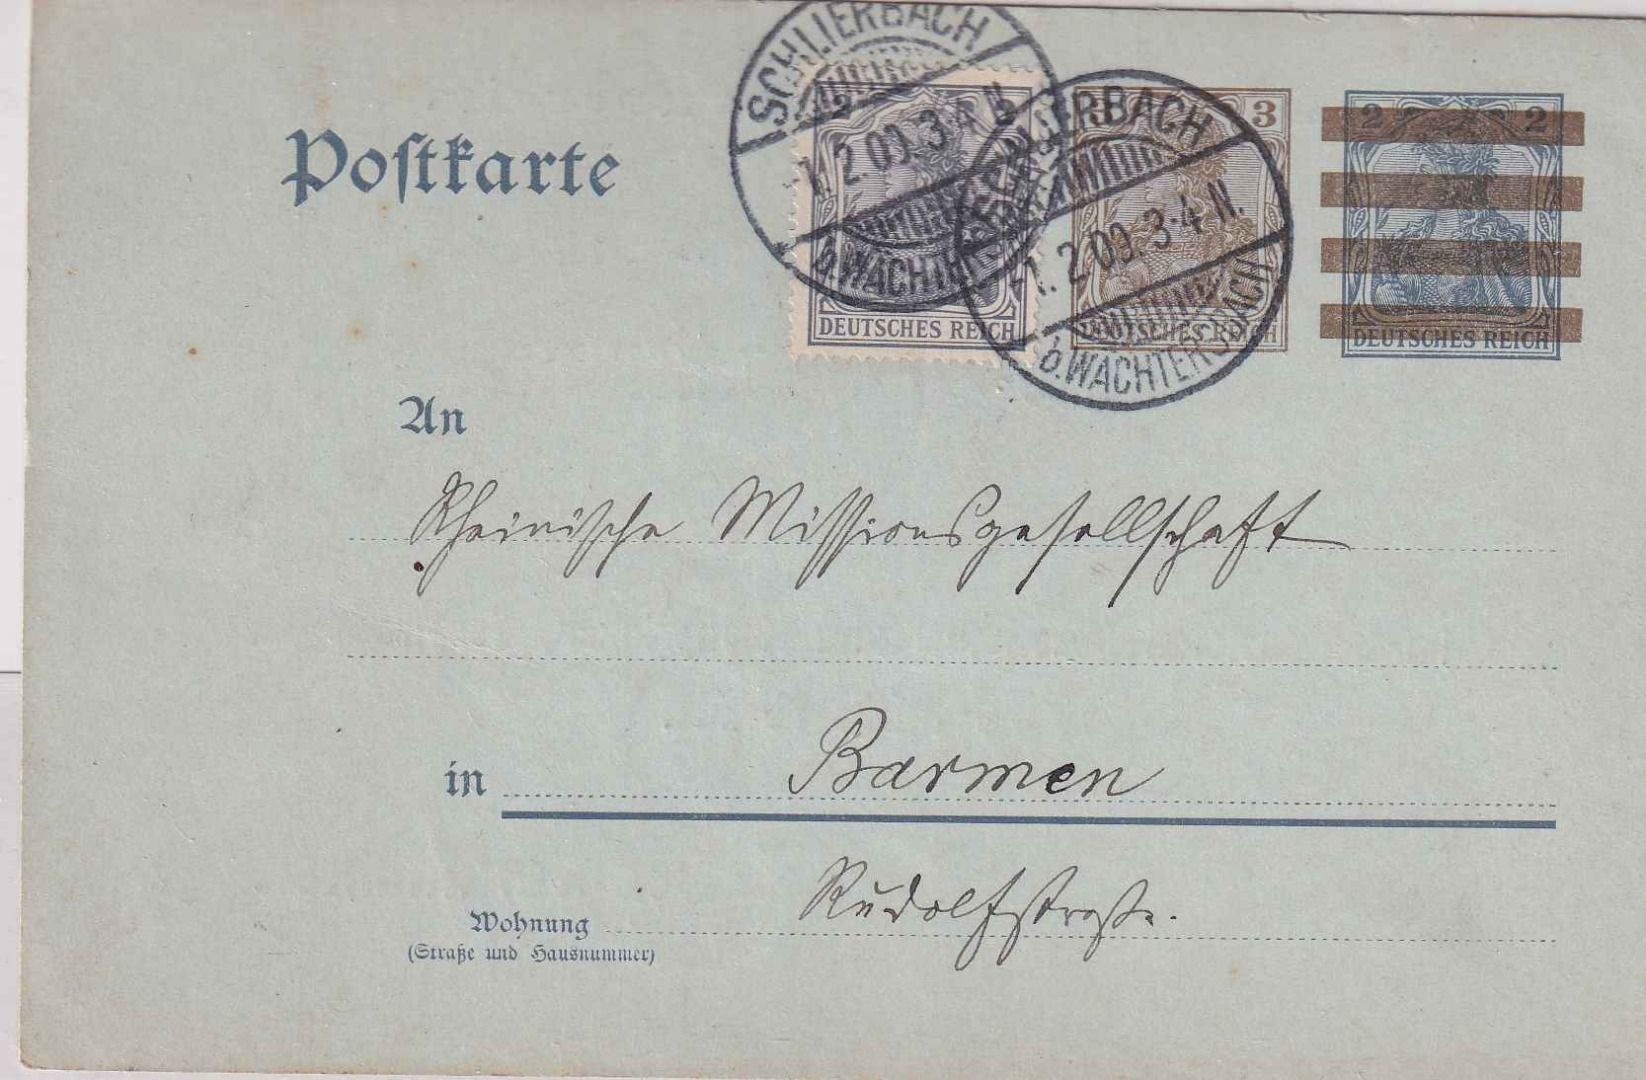 Postkarte
SCHLIERBACH
1.2.09.3-4 N.
b.WÄCHTERSBACH
2 2
DEUTSCHES REICH
SCHLIERBACH
1.2.09.3-4 N.
b.WÄCHTERSBACH
3
DEUTSCHES REICH
2 2
DEUTSCHES REICH
An
Rheinische Missionsgesellschaft
in Barmen
Rudolfstraße.
Wohnung
(Straße und Hausnummer)